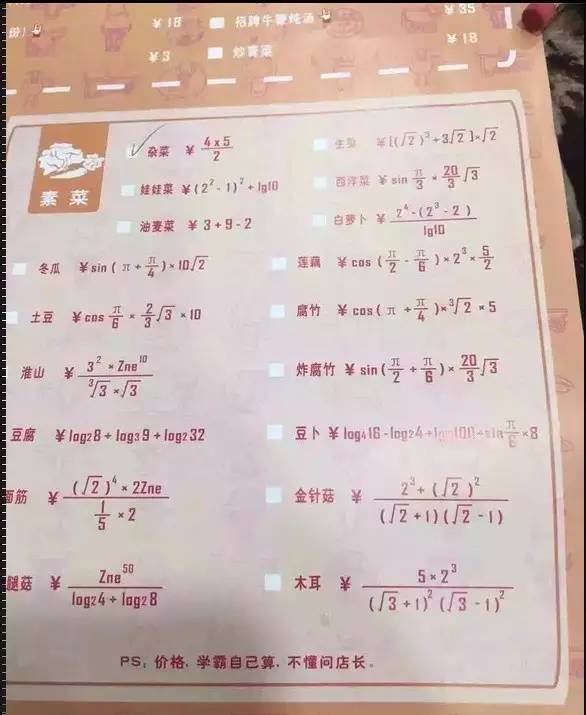 份) ¥18 招牌牛鞭炖汤 ¥35
¥3 炒青菜 ¥18
素菜
杂菜 ¥ 4×5/2
生菜 ¥[(√2)³+3√2]×√2
娃娃菜 ¥(2²-1)²+lg10
西洋菜 ¥ sin π/3 × 20/3 √3
油麦菜 ¥ 3+9-2
白萝卜 ¥ 2⁴-(2³-2)/lg10
冬瓜 ¥sin(π+π/4)×10√2
莲藕 ¥cos(π/2-π/6)×2³×5/2
土豆 ¥cos π/6 × 2/3 √3 ×10
腐竹 ¥cos(π+π/4)×³√2 ×5
淮山 ¥ 3²×Zne¹⁰/³√3×√3
炸腐竹 ¥ sin(π/2+π/6)×20/3 √3
豆腐 ¥log₂8+log₃9+log₂32
豆卜 ¥log₄16-log₂4+lg100+sin π/6 ×8
面筋 ¥ (√2)⁴×2Zne/1/5×2
金针菇 ¥ 2³+(√2)²/(√2+1)(√2-1)
腿菇 ¥ Zne⁵⁰/log₂4+log₂8
木耳 ¥ 5×2³/(√3+1)²(√3-1)²
PS, 价格, 学霸自己算, 不懂问店长。